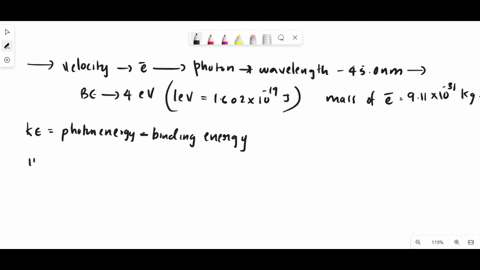 ⟶ velocity → ē ⟶ photon → wavelength - 45.0nm ⟶
BE → 4 eV (1eV = 1.602 x 10^-19 J) mass of ē = 9.11 x 10^-31 kg
KE = photon energy - binding energy
119%